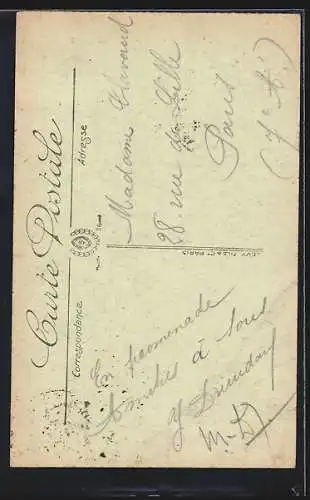 Carte Postale
Correspondance
Adresse
LEVY FILS & Cie PARIS
En promenade
Amitiés à tous
M. D
Madame
28. rue de Lille
Paris
(7e A)